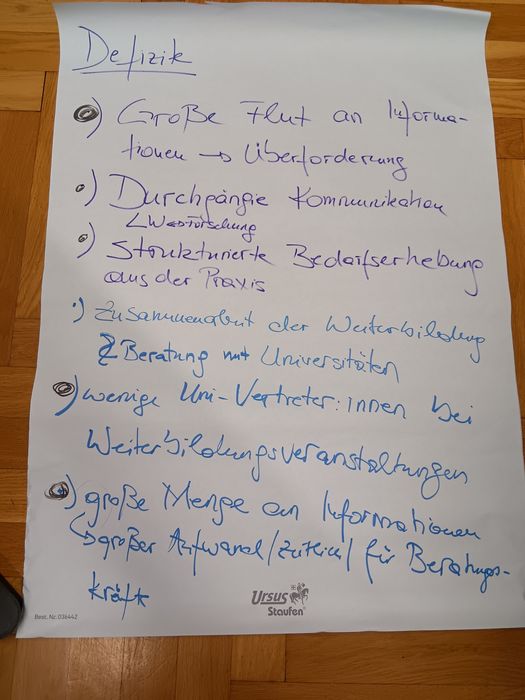 Defizik
•) Große Flut an Informa-
tionen → Überforderung
•) Durchgängie Kommunikation
•) Strukturierte Bedarfserhebung
aus der Praxis
•) Zusammenarbeit der Weiterbildung
& Beratung mit Universitäten
•) wenige Uni-Vertreter:innen bei
Weiterbildungsveranstaltungen
•) große Menge an Informationen
↳ großer Aufwand /zeitlich/ für Beratungs-
kräfte
Ursus
Staufen
Best. Nr. 036442